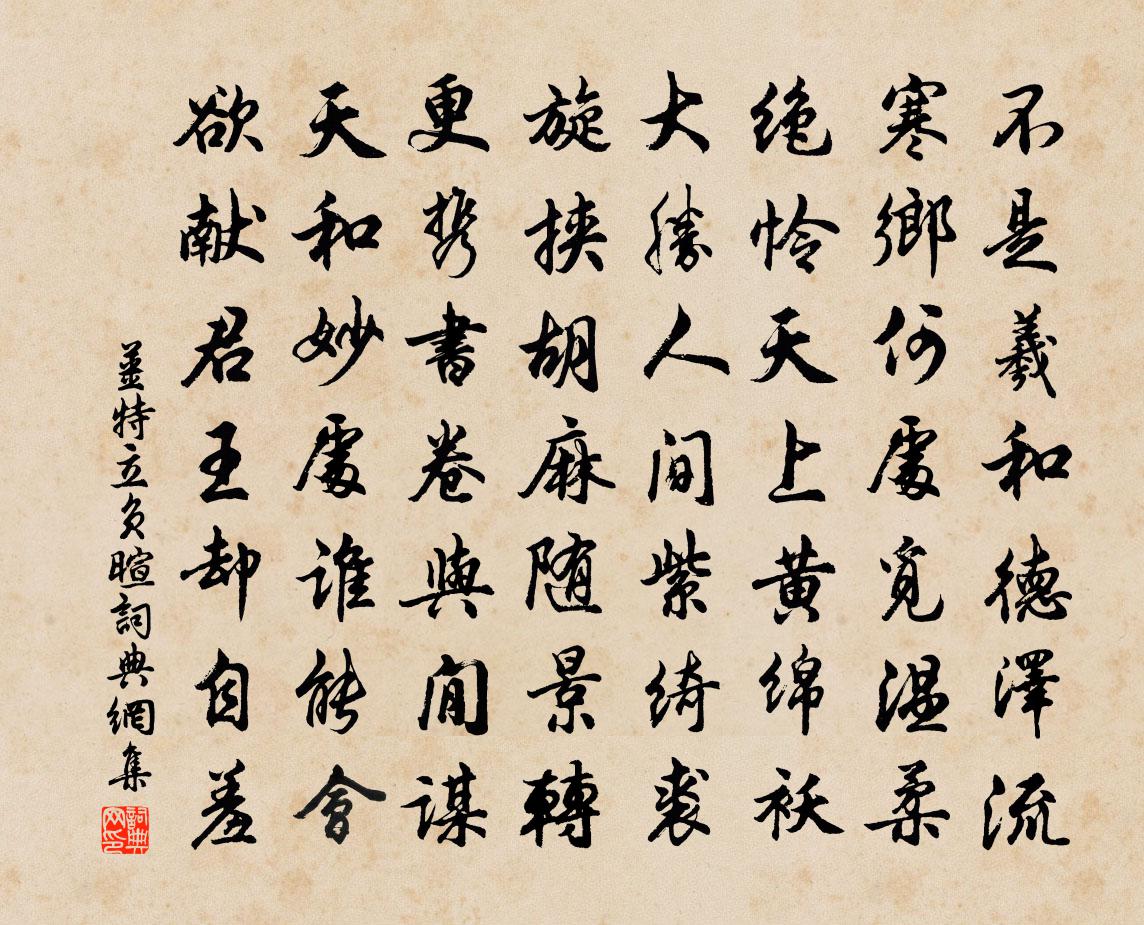 不是羲和德澤流
寒鄉何處覓溫柔
絕怜天上黃綿襖
大勝人间紫綺裘
旋挟胡麻随景轉
更携書卷與閒謀
天和妙處誰能會
欲献君王却自羞
姜特立负暄詞典網集
詞典网印